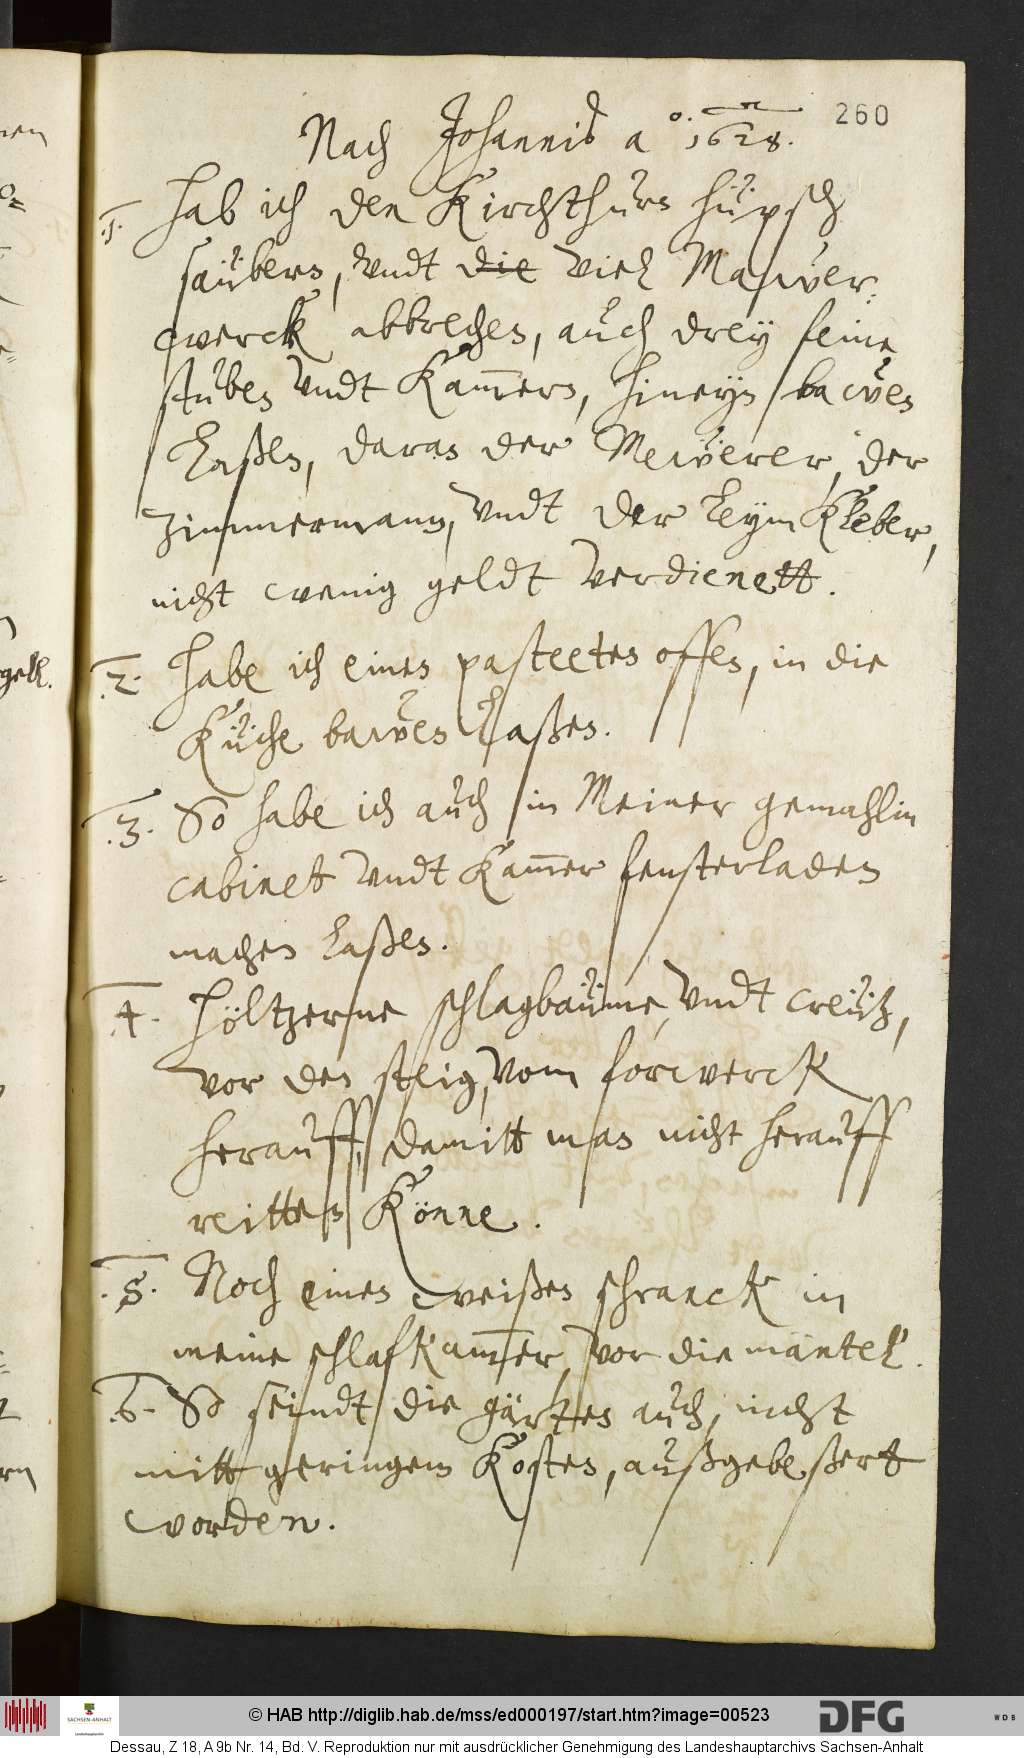 260
Nach Johannis ao. 1628.
1. Hab ich den Kirchthurn hüpsch
saübern, vndt die viel Mawer¬
werck abbrechen, auch drey feine
stuben vndt Kam̅ern, hineyn bawen
laßen, daran der Mewrer, der
zimmermann, vndt der leym Kleber,
nicht wenig geldt verdienett.
2. Habe ich einen pasteeten offen, in die
Küche bawen laßen.
3. So habe ich auch in Meiner gemahlin
cabinet vndt Kam̅er fensterladen
machen laßen.
4. Höltzerne schlagbaüme, vndt creütz,
vor den steig, vom forwerck
herauff, damitt man nicht herauff
reitten Könne.
5. Noch einen weißen schranck in
meine schlafKam̅er, vor die mäntel.
6. So seindt die gärten auch, nicht
mitt geringem Kosten, außgebeßert
worden.
gell.
© HAB http://diglib.hab.de/mss/ed000197/start.htm?image=00523
SACHSEN-ANHALT
DFG
WDB
Dessau, Z 18, A 9b Nr. 14, Bd. V. Reproduktion nur mit ausdrücklicher Genehmigung des Landeshauptarchivs Sachsen-Anhalt